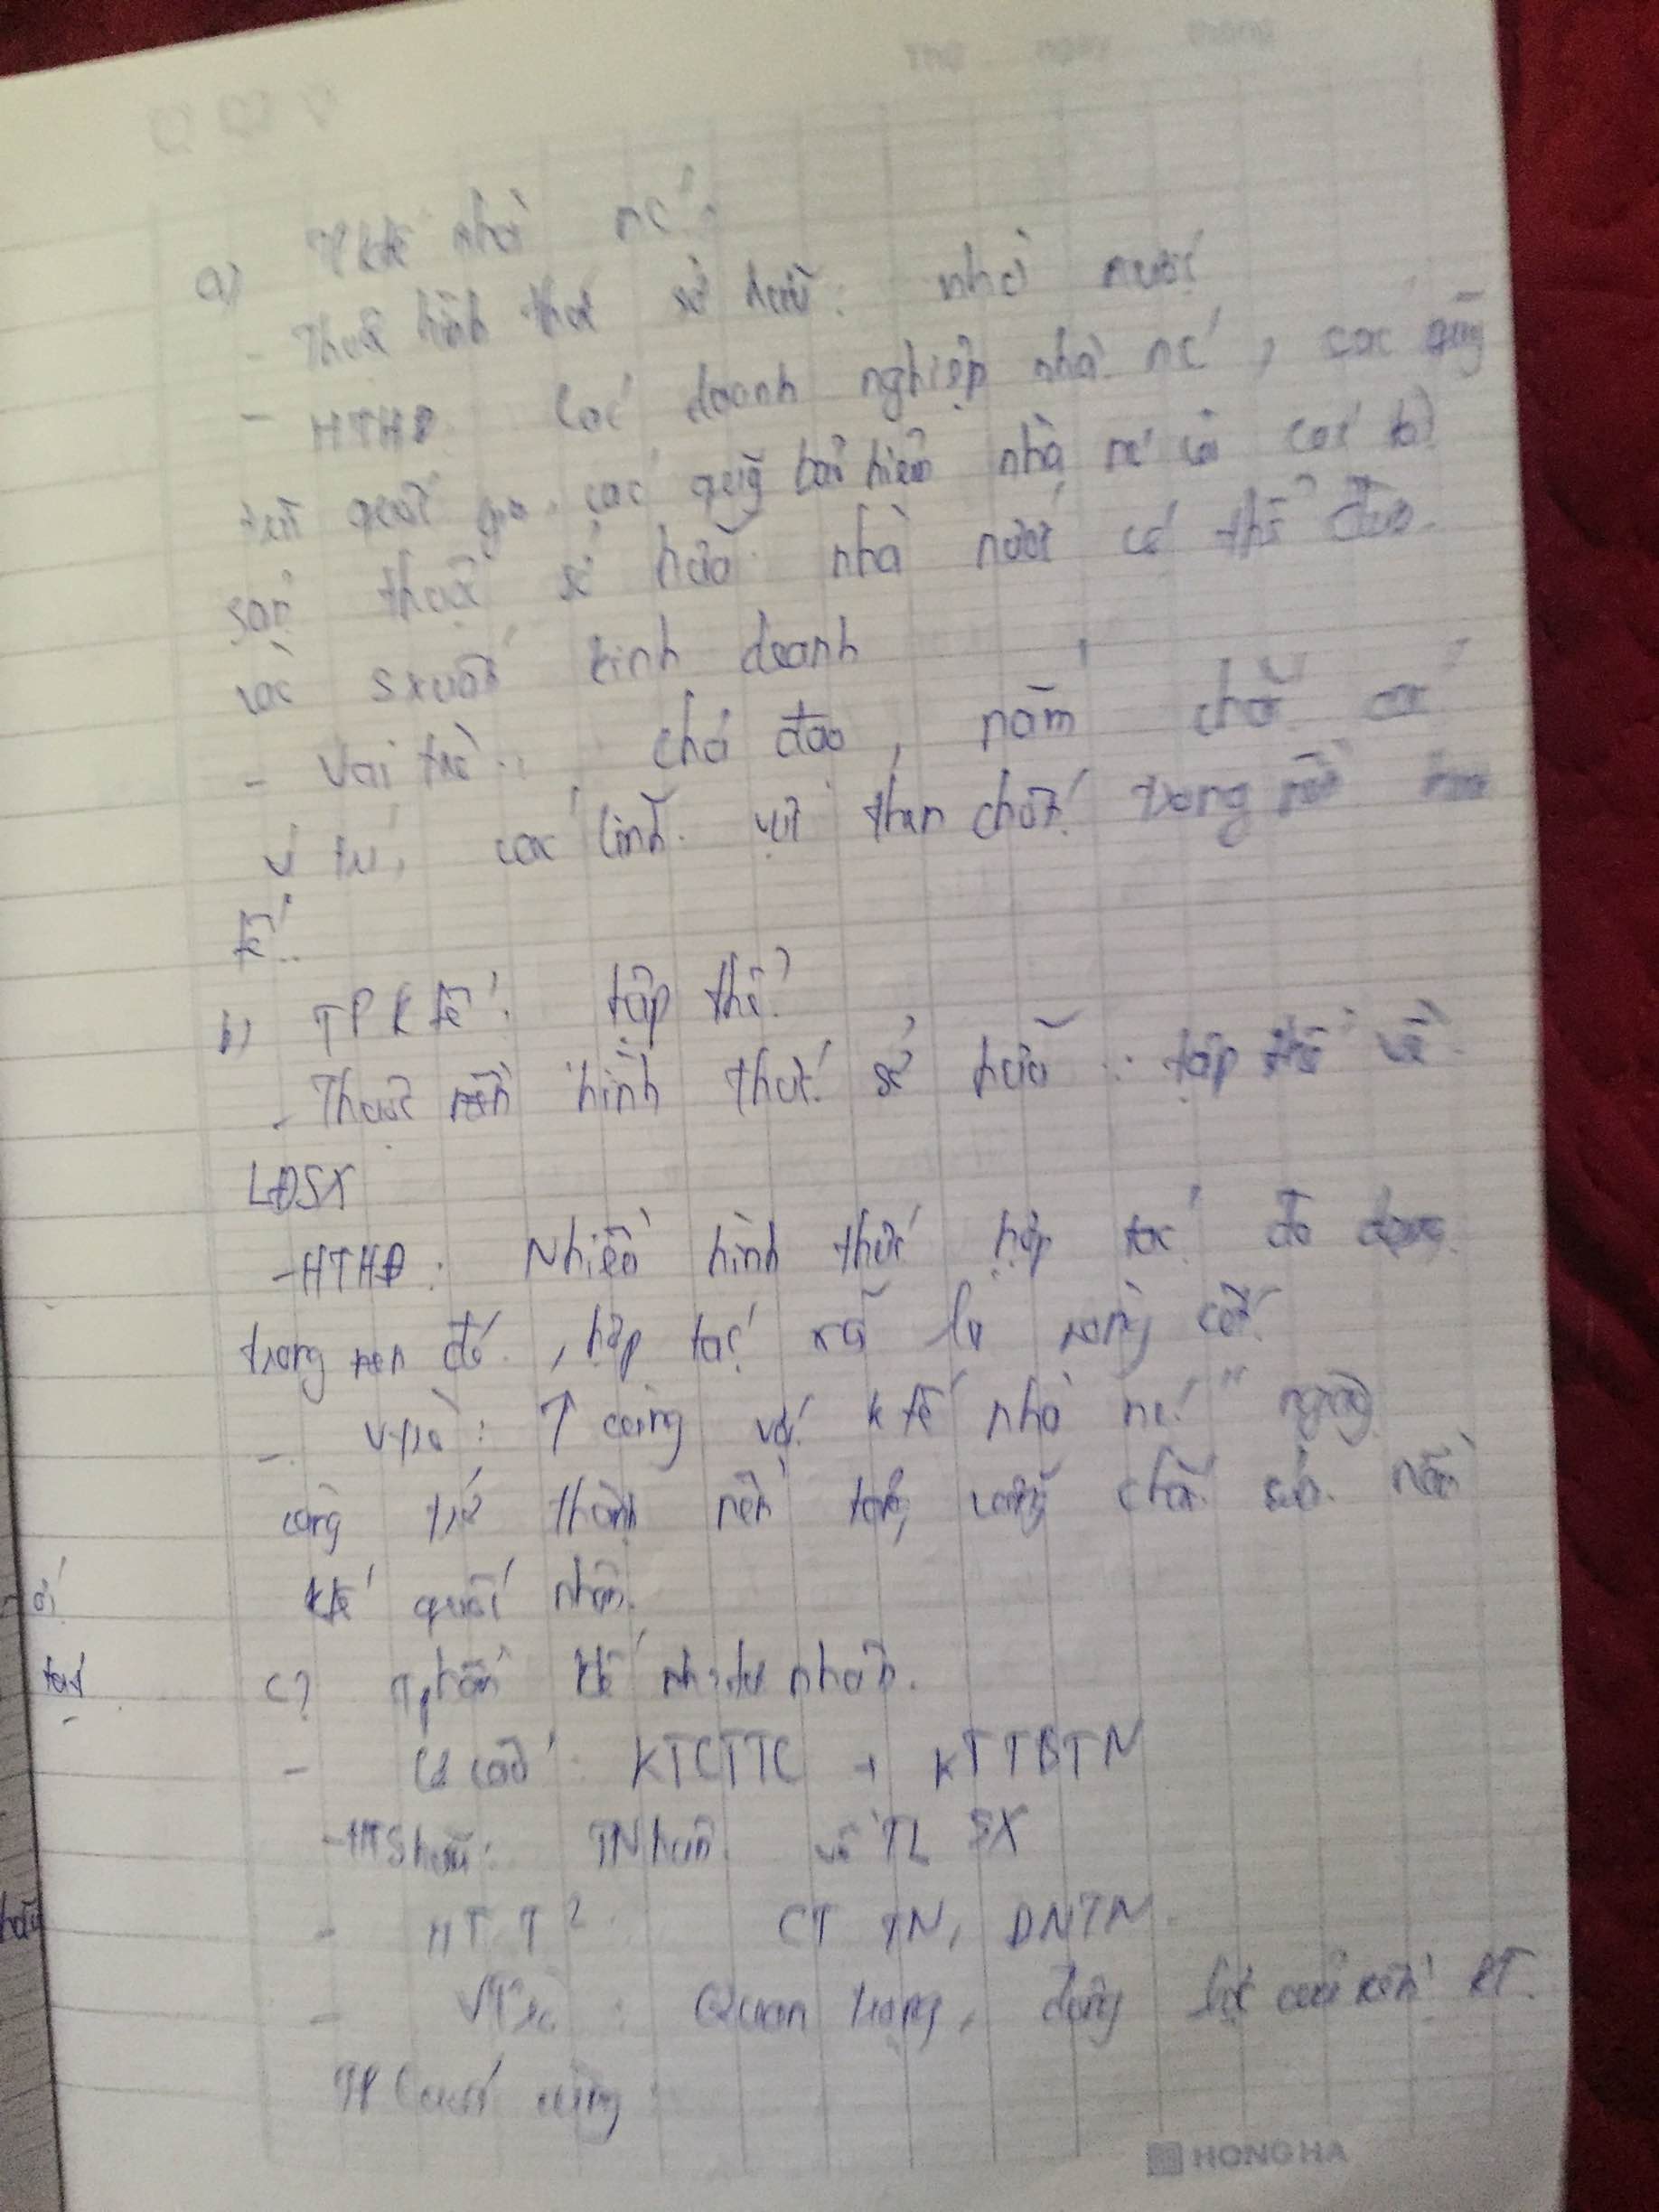 Thứ ngày tháng
a) TPKtế nhà nc:
- Thuộc hình thức sở hữu: nhà nước
- HTHĐ các doanh nghiệp nhà nc, các quỹ
quốc gia, các quỹ bảo hiểm nhà nc và các tài
sản thuộc sở hữu nhà nước có thể đưa
vào sxuất kinh doanh
- Vai trò: chủ đạo, nắm chắc các
vị trí, các lĩnh vực then chốt trong nền kinh
tế.
b) TPKtế tập thể
- Thuộc hình thức sở hữu: tập thể về
LĐSX
- HTHĐ: Nhiều hình thức hợp tác đa dạng
trong đó, hợp tác xã là nòng cốt
- Vtrò: ↑ cùng với ktế nhà nc" ngày
càng trở thành nền tảng vững chắc của nền
ktế quốc nhân.
c) Tphần ktế tư nhân.
- Cơ cấu: KTCTTC + KTTBTN
- HTShữu: TNhân về TLSX
- HTT²: CTTN, DNTN.
- VTrò: Quan trọng, động lực của nền KT.
TP cuối cùng:
tác
HONG HA